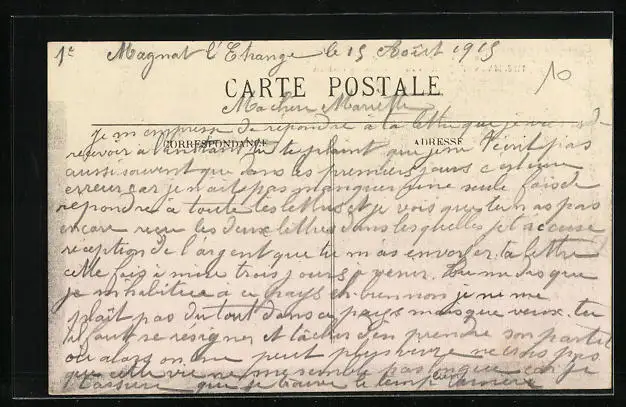 1e Magnat l'Etrange le 15 Août 1915
10
CARTE POSTALE
Ma chère Mariette
je m empresse de répondre à ta lettre que je vie de
CORRESPONDANCE ADRESSE
recevoir à l'instant tu te plaint que je ne t'écrit pas
aussi souvent que dans les premiers jours c'est une
erreur car je n'ait pas manquer une seule fois de
répondre à toute tes lettres et je vois que tu n as pas
encore reçu les deux lettres dans lesquelles je t accuse
réception de l'argent que tu m'as envoyer. ta lettre
cette fois à mis trois jours à venir. Tu me dis que
je m habitue à ce pays eh bien non je ne me
plaît pas du tout dans ce pays mais que veux-tu
il faut se résigner et tâcher d'en prendre son parti
ou alors on ne peut pas vivre ne crois pas
que cette vie ne me semble pas longue car je
t'assure que je trouve le temp